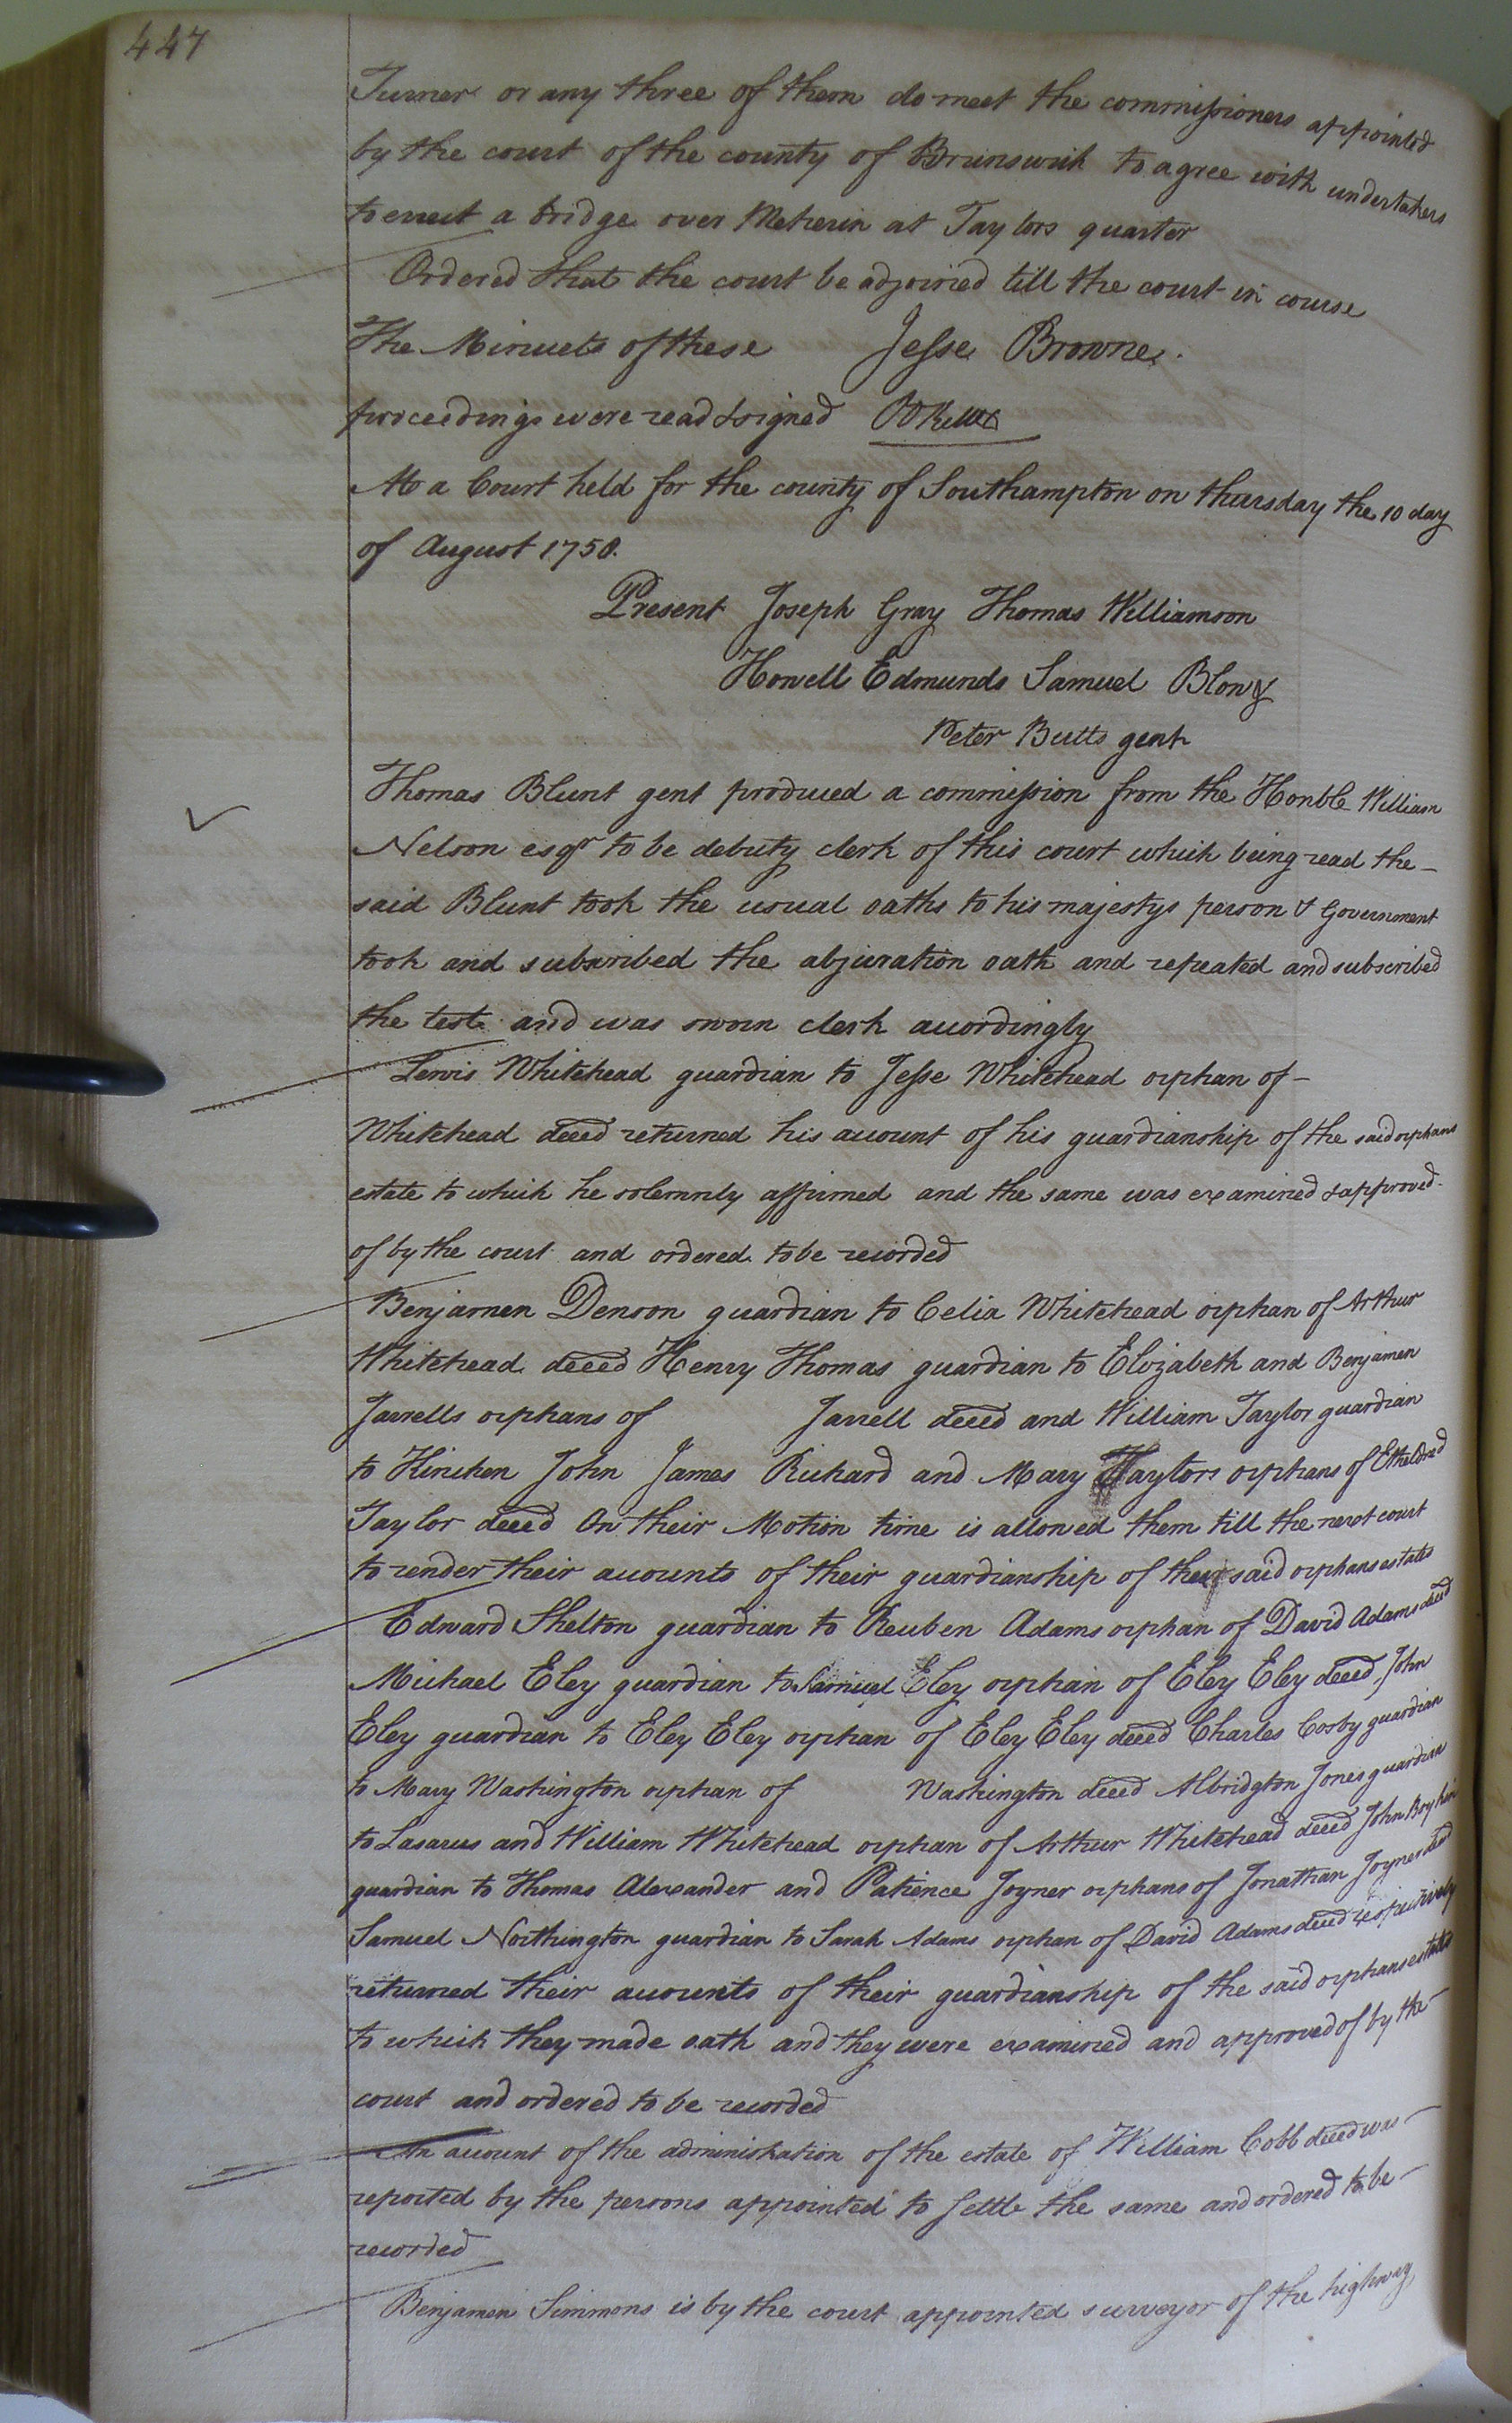 447
Turner or any three of them do meet the commissioners appointed
by the court of the county of Brunswick to agree with undertakers
to errect a bridge over Meherin at Taylors quarter
Ordered that the court be adjorned till the court in course
The Minuets of these Jesse Browne.
proceedings were read & signed
At a Court held for the county of Southampton on thursday the 10 day
of August 1758.
Present Joseph Gray Thomas Williamson
Howell Edmunds Samuel Blow &
Peter Butts gent
Thomas Blunt gent produced a commission from the Honble William
Nelson esqr to be debuty clerk of this court which being read the
said Blunt took the usual oaths to his majestys person & Government
took and subscribed the abjuration oath and repeated and subscribed
the test and was sworn clerk accordingly
Lewis Whitehead guardian to Jesse Whitehead orphan of
Whitehead deced returned his account of his guardianship of the said orphans
estate to which he solemnly affirmed and the same was examined & approved
of by the court and ordered to be recorded
Benjamen Denson guardian to Celia Whitehead orphan of Arthur
Whitehead deced Henry Thomas guardian to Elizabeth and Benjamen
Jarrells orphans of Jarrell deced and William Taylor guardian
to Hinchen John James Richard and Mary Taylors orphans of Etheldred
Taylor deced On their Motion time is allowed them till the next court
to render their accounts of their guardianship of their said orphans estates
Edward Shelton guardian to Reuben Adams orphan of David Adams deced
Michael Eley guardian to Samuel Eley orphan of Eley Eley deced, John
Eley guardian to Eley Eley orphan of Eley Eley deced Charles Cosby guardian
to Mary Washington orphan of Washington deced Albridgton Jones guardian
to Lasarus and William Whitehead orphan of Arthur Whitehead deced John Boykin
guardian to Thomas Alexander and Patience Joyner orphans of Jonathan Joyner deced
Samuel Northington guardian to Sarah Adams orphan of David Adams deced respectively
returned their accounts of their guardianship of the said orphans estates
to which they made oath and they were examined and approved of by the
court and ordered to be recorded
An account of the administration of the estate of William Cobb deced was
reported by the persons appointed to settle the same and ordered to be
recorded
Benjamen Simmons is by the court appointed surveyor of the highway